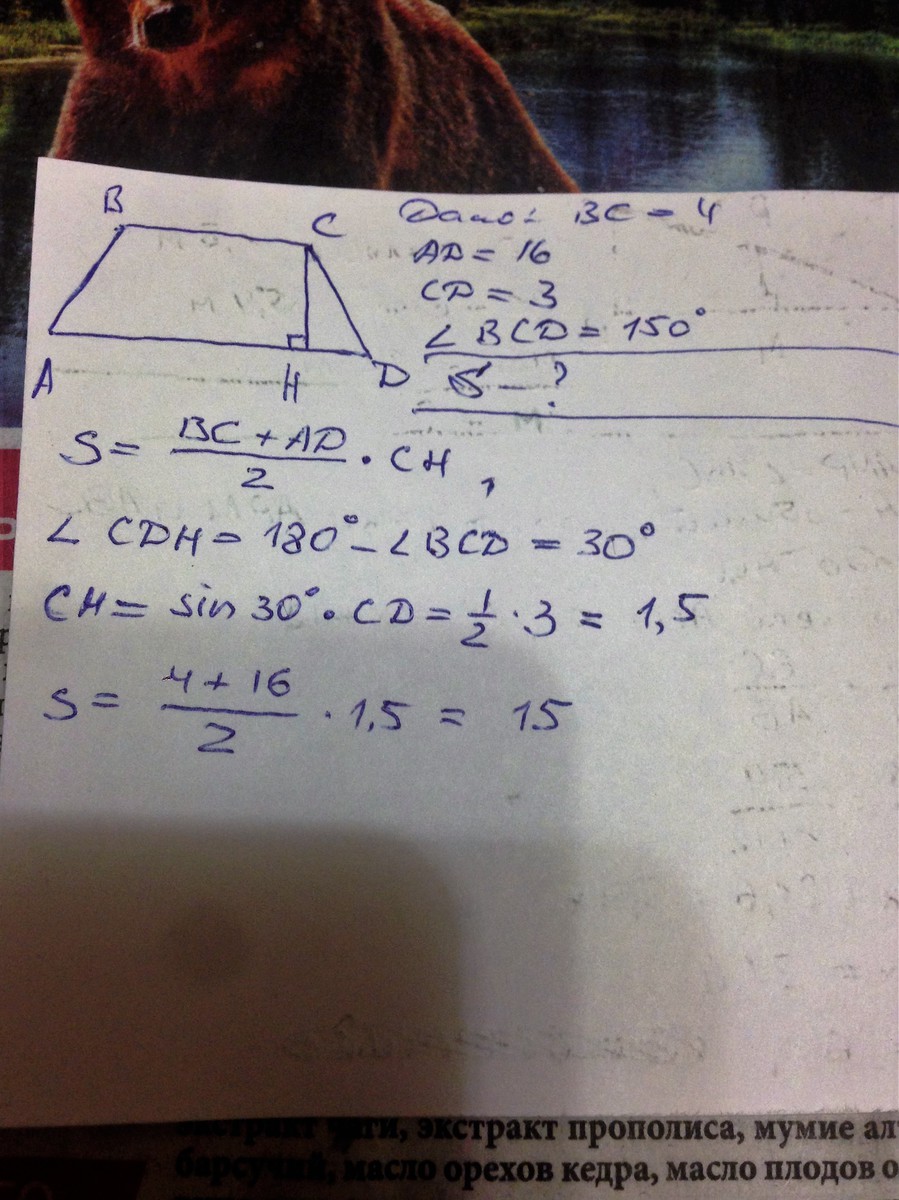 B
C
Дано: BC = 4
AD = 16
CD = 3
∠ BCD = 150°
A
H
D
S — ?
S = (BC + AD)/2 · CH,
∠ CDH = 180° – ∠ BCD = 30°
CH = sin 30° · CD = 1/2 · 3 = 1,5
S = (4 + 16)/2 · 1,5 = 15
экстракт прополиса, мумие ал
барсучий, масло орехов кедра, масло плодов о